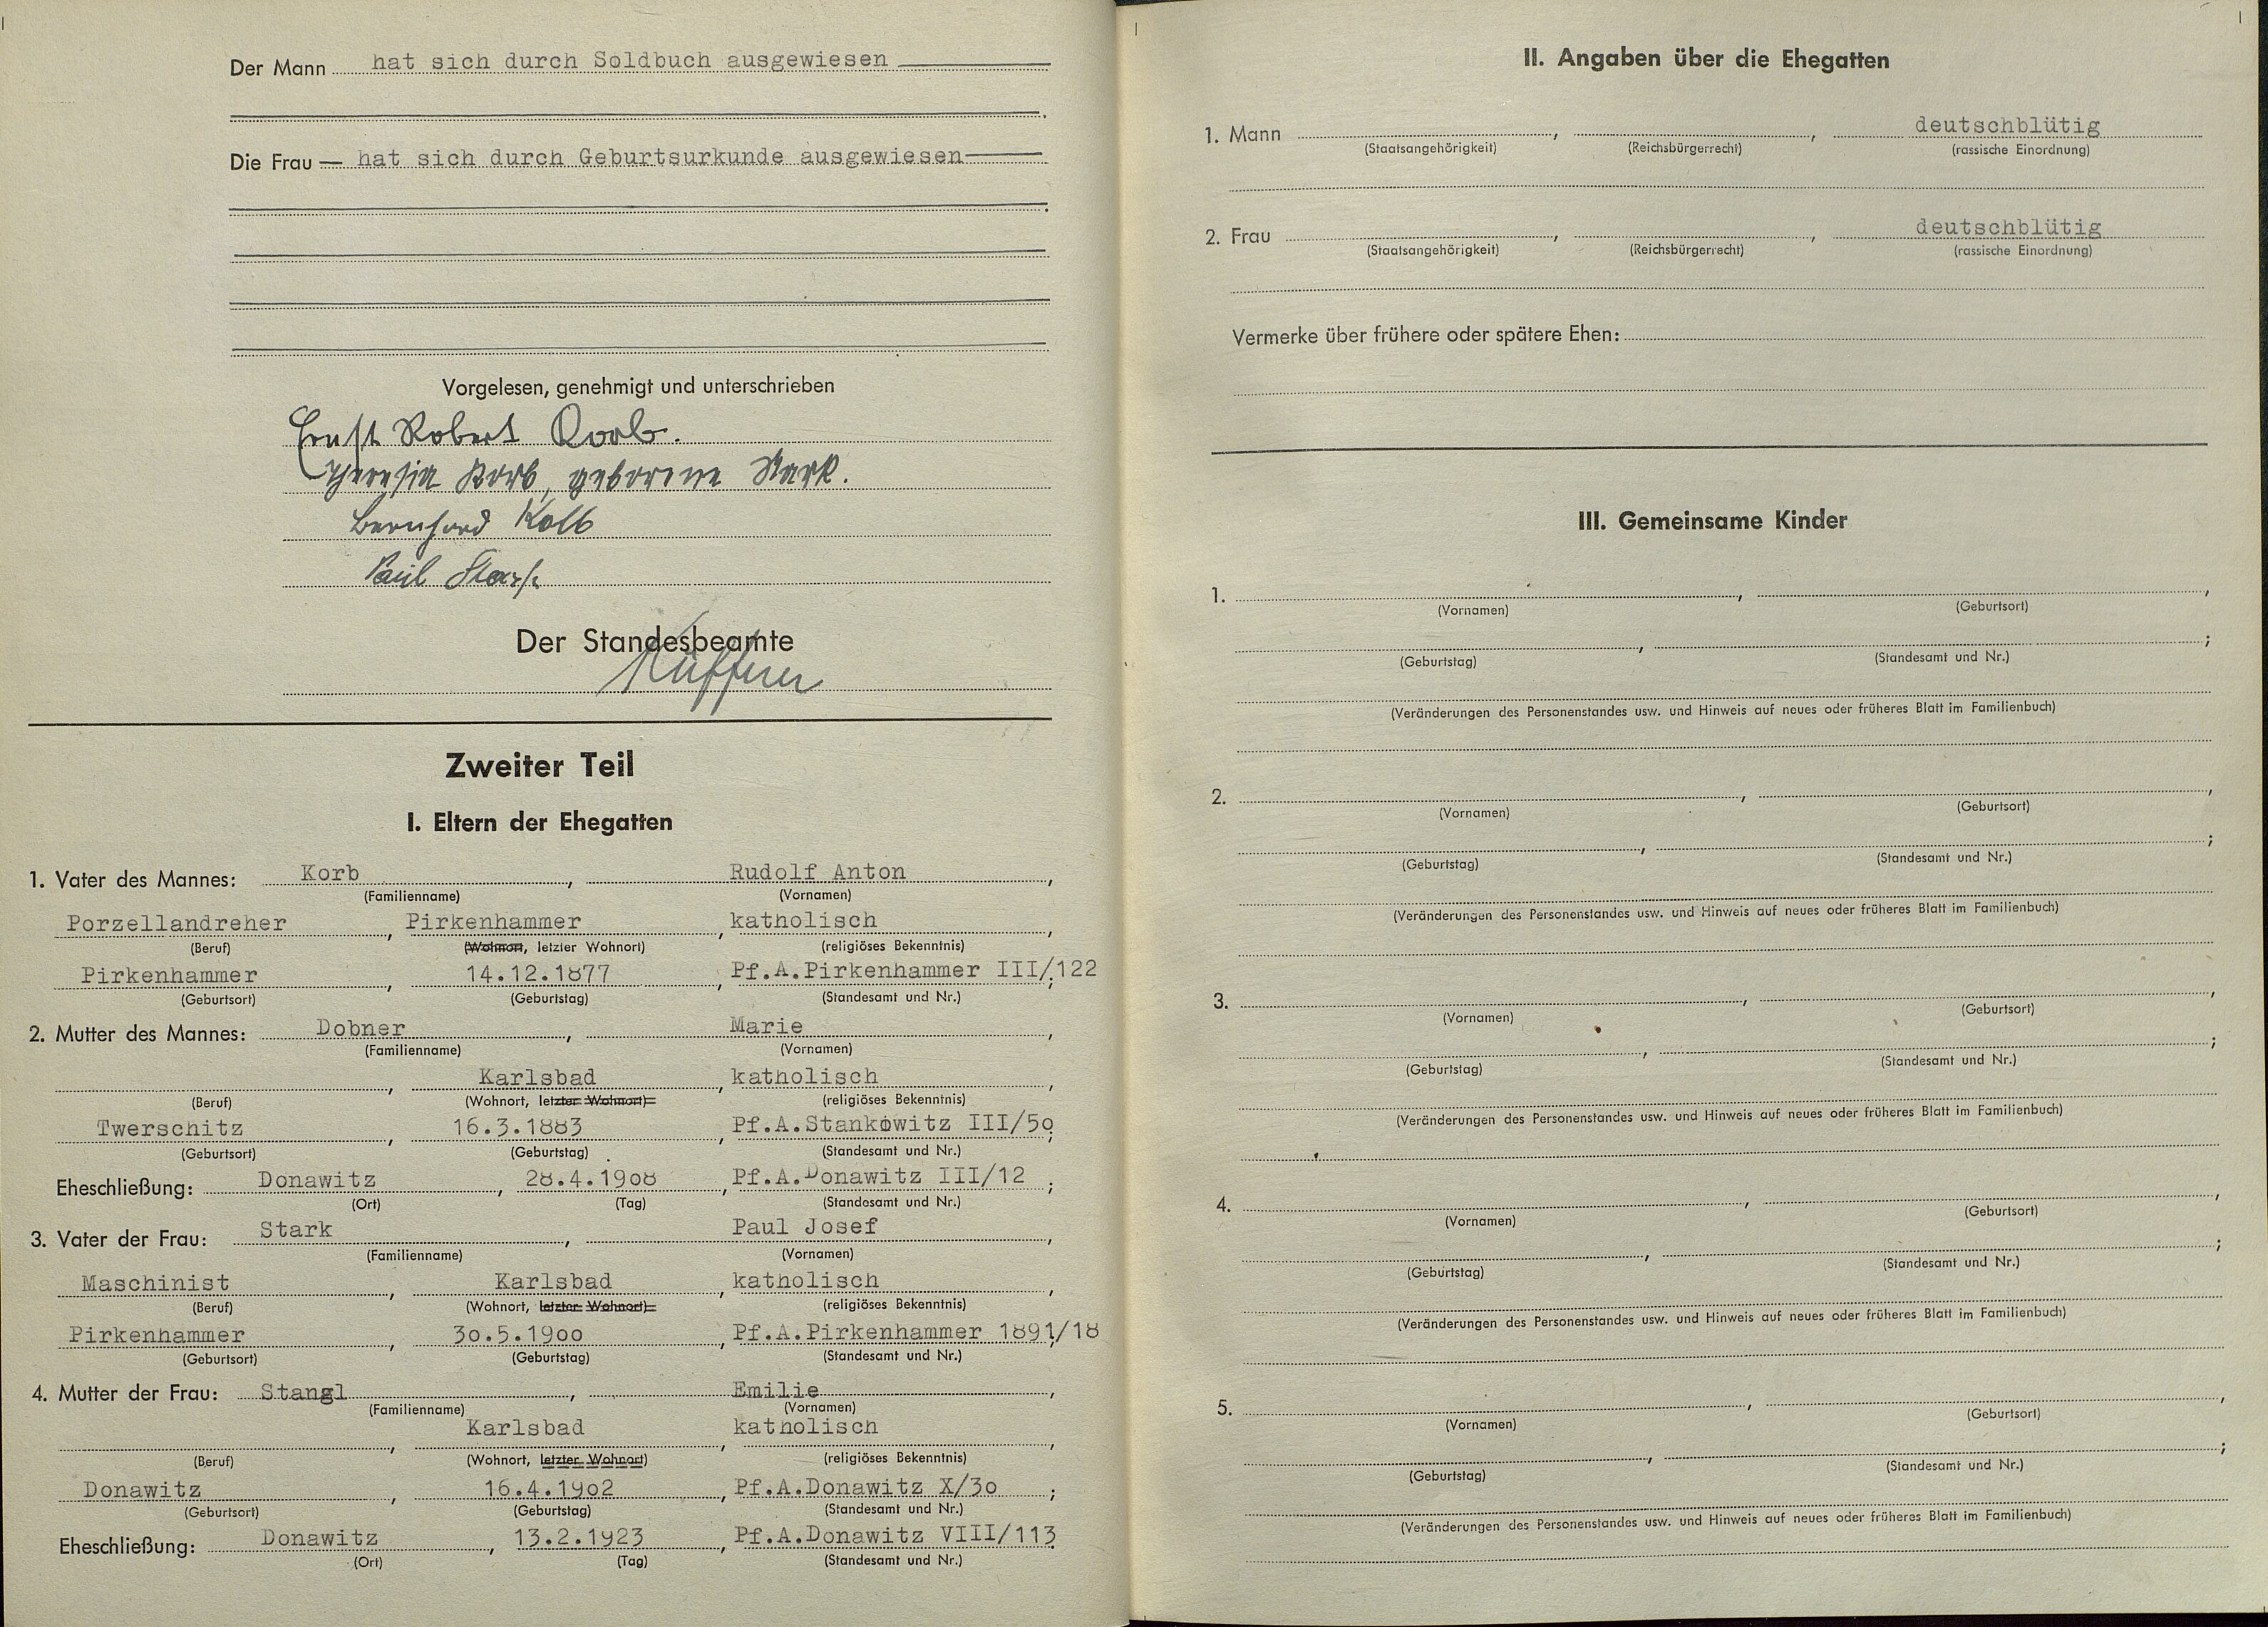 Der Mann hat sich durch Soldbuch ausgewiesen
Die Frau — hat sich durch Geburtsurkunde ausgewiesen
Vorgelesen, genehmigt und unterschrieben
Ernst Robert Korb.
Theresia Korb, geborene Stark.
Bernhard Kolb
Paul Stark
Der Standesbeamte
Zweiter Teil
I. Eltern der Ehegatten
1. Vater des Mannes: Korb, Rudolf Anton,
(Familienname) (Vornamen)
Porzellandreher, Pirkenhammer, katholisch,
(Beruf) (Wohnort, letzter Wohnort) (religiöses Bekenntnis)
Pirkenhammer, 14.12.1877, Pf.A.Pirkenhammer III/122;
(Geburtsort) (Geburtstag) (Standesamt und Nr.)
2. Mutter des Mannes: Dobner, Marie,
(Familienname) (Vornamen)
, Karlsbad, katholisch,
(Beruf) (Wohnort, letzter Wohnort) (religiöses Bekenntnis)
Twerschitz, 16.3.1883, Pf.A.Stankowitz III/5o;
(Geburtsort) (Geburtstag) (Standesamt und Nr.)
Eheschließung: Donawitz, 28.4.19o8, Pf.A.Donawitz III/12;
(Ort) (Tag) (Standesamt und Nr.)
3. Vater der Frau: Stark, Paul Josef,
(Familienname) (Vornamen)
Maschinist, Karlsbad, katholisch,
(Beruf) (Wohnort, letzter Wohnort) (religiöses Bekenntnis)
Pirkenhammer, 3o.5.19oo, Pf.A.Pirkenhammer 1891/18;
(Geburtsort) (Geburtstag) (Standesamt und Nr.)
4. Mutter der Frau: Stangl, Emilie,
(Familienname) (Vornamen)
, Karlsbad, katholisch,
(Beruf) (Wohnort, letzter Wohnort) (religiöses Bekenntnis)
Donawitz, 16.4.19o2, Pf.A.Donawitz X/3o;
(Geburtsort) (Geburtstag) (Standesamt und Nr.)
Eheschließung: Donawitz, 13.2.1923, Pf.A.Donawitz VIII/113.
(Ort) (Tag) (Standesamt und Nr.)
II. Angaben über die Ehegatten
1. Mann , , deutschblütig
(Staatsangehörigkeit) (Reichsbürgerrecht) (rassische Einordnung)
2. Frau , , deutschblütig
(Staatsangehörigkeit) (Reichsbürgerrecht) (rassische Einordnung)
Vermerke über frühere oder spätere Ehen:
III. Gemeinsame Kinder
1. , ,
(Vornamen) (Geburtsort)
, ;
(Geburtstag) (Standesamt und Nr.)
(Veränderungen des Personenstandes usw. und Hinweis auf neues oder früheres Blatt im Familienbuch)
2. , ,
(Vornamen) (Geburtsort)
, ;
(Geburtstag) (Standesamt und Nr.)
(Veränderungen des Personenstandes usw. und Hinweis auf neues oder früheres Blatt im Familienbuch)
3. , ,
(Vornamen) (Geburtsort)
, ;
(Geburtstag) (Standesamt und Nr.)
(Veränderungen des Personenstandes usw. und Hinweis auf neues oder früheres Blatt im Familienbuch)
4. , ,
(Vornamen) (Geburtsort)
, ;
(Geburtstag) (Standesamt und Nr.)
(Veränderungen des Personenstandes usw. und Hinweis auf neues oder früheres Blatt im Familienbuch)
5. , ,
(Vornamen) (Geburtsort)
, ;
(Geburtstag) (Standesamt und Nr.)
(Veränderungen des Personenstandes usw. und Hinweis auf neues oder früheres Blatt im Familienbuch)